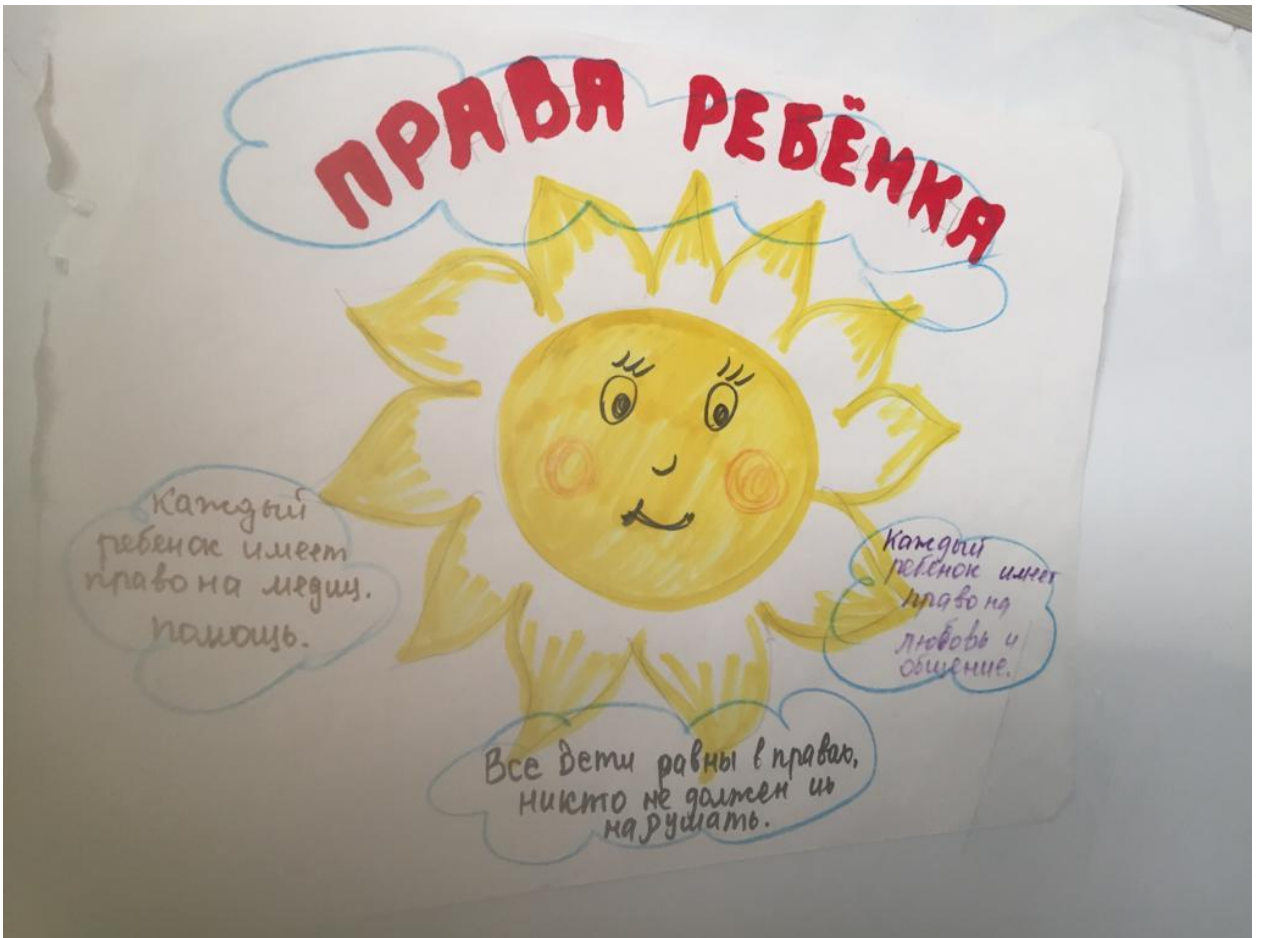 ПРАВА РЕБЁНКА
Каждый
ребенок имеет
право на медиц.
помощь.
Каждый
ребёнок имеет
право на
любовь и
общение.
Все дети равны в правах,
никто не должен их
нарушать.